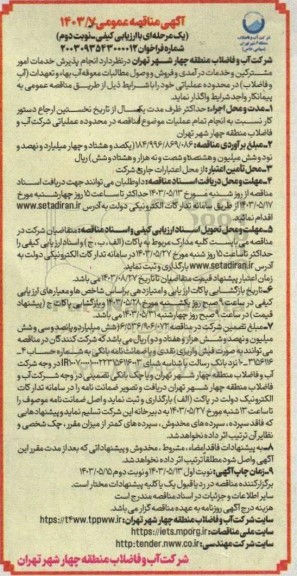 آگهی مناقصه عمومی ۱۴۰۳/۷
(یک مرحله‌ای با ارزیابی کیفی-نوبت دوم)
شماره فراخوان ۲۰۰۳۰۹۳۵۴۳۰۰۰۰۱۲
شرکت آب و فاضلاب منطقه چهار شهر تهران در نظر دارد انجام پذیرش خدمات امور
مشترکین و خدمات درآمدی و فروش و وصول مطالبات معوقه آب بها و تعهدات (آب
و فاضلاب) در محدوده عملیاتی خود را با شرایط ذیل از طریق مناقصه عمومی به
پیمانکار واجد شرایط واگذار نماید.
۱-مدت و محل اجرا: حداکثر ظرف مدت یکسال از تاریخ نخستین ارجاع دستور
کار نسبت به انجام تمام عملیات موضوع مناقصه در محدوده عملیاتی شرکت آب و
فاضلاب منطقه چهار شهر تهران
۲-مبلغ برآوردی مناقصه:
نود و شش میلیون و هشتصد و شصت و نه هزار و هشتاد و شش) ریال
۳-محل تأمین اعتبار: از محل اعتبارات جاری شرکت
۴-مهلت و محل دریافت اسناد مناقصه: داوطلبان می‌توانند جهت دریافت اسناد
مناقصه از روز شنبه مورخ ۱۴۰۳/۰۵/۱۳ حداکثر تا ساعت ۱۵ روز چهارشنبه مورخ
۱۴۰۳/۰۵/۱۷ از طریق سامانه تدارکات الکترونیکی دولت به آدرس www.setadiran.ir
اقدام نمایند.
۵-مهلت و محل تحویل اسناد ارزیابی کیفی و اسناد مناقصه: متقاضیان شرکت در
مناقصه می‌بایست کلیه مدارک مربوط به پاکات (الف، ب، ج) و اسناد ارزیابی کیفی را
حداکثر تا ساعت ۱۵ روز شنبه مورخ ۱۴۰۳/۰۵/۲۷ در سامانه تدارکات الکترونیکی دولت به
آدرس www.setadiran.ir بارگذاری و ثبت نمایند.
زمان اعتبار پیشنهاد قیمت متقاضیان تا تاریخ ۱۴۰۳/۰۸/۲۷ می‌باشد.
۶-تاریخ بازگشایی پاکات: ارزیابی و امتیازدهی بر اساس شاخص‌ها و معیارهای ارزیابی
کیفی در ساعت ۹ صبح روز یکشنبه مورخ ۱۴۰۳/۰۵/۲۸ و بازگشایی پاکات ج (پیشنهاد
قیمت) در ساعت ۹ صبح روز چهارشنبه مورخ ۱۴۰۳/۰۵/۳۱ می‌باشد.
۷-مبلغ تضمین شرکت در مناقصه:
می‌توانند به صورت فیش واریزی نقدی و یا ضمانتنامه بانکی به شماره حساب
نزد بانک رسالت با شناسه شبای
آب و فاضلاب منطقه چهار شهر تهران و یا چک بانکی تضمینی در وجه شرکت آب و
فاضلاب منطقه چهار شهر تهران دریافت و تصویر ضمانت نامه را در سامانه تدارکات
الکترونیک دولت در پاکت (الف) بارگذاری و ثبت نماید و اصل ضمانت نامه موصوف را
تا ساعت ۱۳ شنبه مورخ ۱۴۰۳/۰۵/۲۷ به دبیرخانه این شرکت تسلیم نماید و پیشنهادهایی
که فاقد سپرده، سپرده‌های مخدوش، سپرده‌های کمتر از میزان مقرر، چک شخصی و
نظایر آن ترتیب اثر داده نخواهد شد.
۸-به پیشنهادات فاقد امضاء، مشروط، مخدوش و پیشنهاداتی که بعد از مدت مقرر این
آگهی واصل شود مطلقا ترتیب اثر داده نخواهد شد.
۹-زمان چاپ آگهی: نوبت اول ۱۴۰۳/۰۵/۱۳ و نوبت دوم ۱۴۰۳/۰۵/۱۵
برگزار کننده مناقصه در رد یا قبول یک یا کلیه پیشنهادات مختار است.
سایر اطلاعات و جزئیات در اسناد مناقصه مندرج است
هزینه درج آگهی روزنامه به عهده مناقصه گزار می‌باشد.
سایت شرکت آب و فاضلاب منطقه چهار شهر تهران: https://t4ww.tppww.ir
سایت ملی مناقصات: https://iets.mporg.ir
سایت شرکت مهندسی: http:tender.nww.co.ir
شرکت آب و فاضلاب منطقه چهار شهر تهران